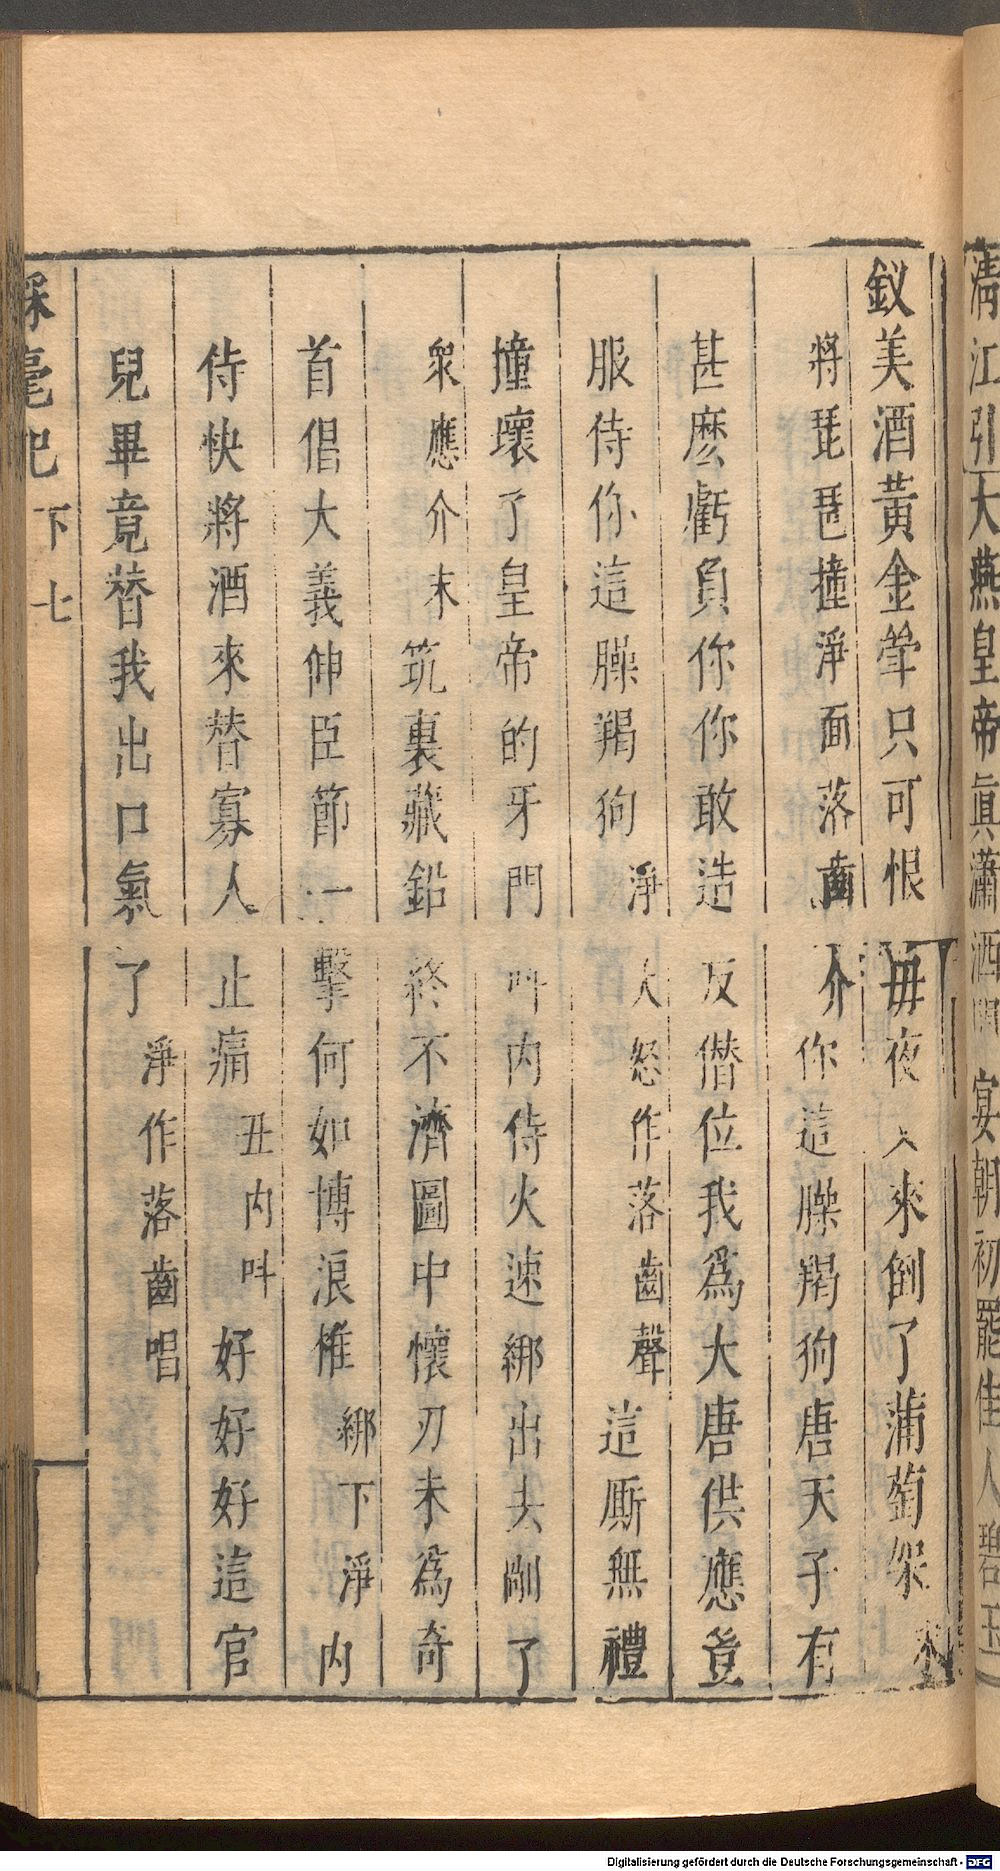 清江引大燕皇帝真瀟洒開宴朝初罷佳人碧玉
釵美酒黃金斝只可恨毎夜人來倒了蒲萄架末
將琵琶撞淨面落齒介你這臊羯狗唐天子有
甚麽虧負你你敢造反僭位我爲大唐供應肯
服侍你這臊羯狗淨大怒作落齒聲這厮無禮
撞壞了皇帝的牙門叫内侍火速綁出去剮了
衆應介末筑裏藏鉛終不濟圖中懷刃未爲奇
首倡大義伸臣節一擊何如博浪椎綁下淨内
侍快將酒來替寡人止痛丑内叫好好好這官
兒畢竟替我出口氣了淨作落齒唱
綵毫記下七
Digitalisierung gefördert durch die Deutsche Forschungsgemeinschaft - DFG